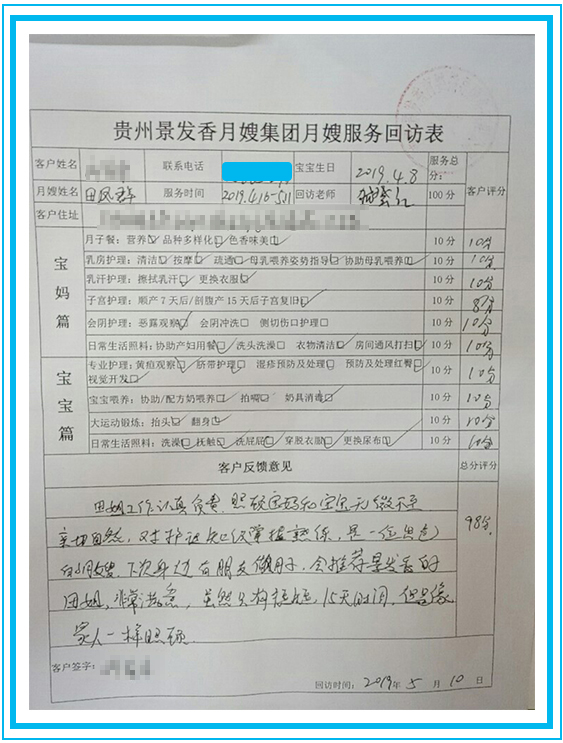 贵州景发香月嫂集团月嫂服务回访表
客户姓名 联系电话 宝宝生日 2019.4.8 服务总分: 客户评分
月嫂姓名 田凤群 服务时间 2019.4.16-5.11 回访老师 100分
客户住址
宝妈篇
月子餐:营养 品种多样化 色香味美 10分 10分
乳房护理:清洁 按摩 疏通 母乳喂养姿势指导 协助母乳喂养 10分 10分
乳汗护理:擦拭乳汗 更换衣服 10分 10分
子宫护理:顺产7天后/剖腹产15天后子宫复旧 10分 8分
会阴护理:恶露观察 会阴冲洗 侧切伤口护理 10分 10分
日常生活照料:协助产妇用餐 洗头洗澡 衣物清洁 房间通风打扫 10分 10分
宝宝篇
专业护理:黄疸观察 脐带护理 湿疹预防及处理 预防及处理红臀 视觉开发 10分 10分
宝宝喂养:协助/配方奶喂养 拍嗝 奶具消毒 10分 10分
大运动锻炼:抬头 翻身 10分 10分
日常生活照料:洗澡 抚触 洗屁屁 穿脱衣服 更换尿布 10分 10分
客户反馈意见 总分评分
田姐工作认真负责,照顾宝妈和宝宝无微不至 98分
亲切自然,对护证知级掌握熟练,是一位出色
的月嫂,下次身边有朋友做月子,会推荐景发香的
田姐,非常满意,虽然只有短短,15天时间,但是像
家人一样照顾.
客户签字:
回访时间:2019年5月10日